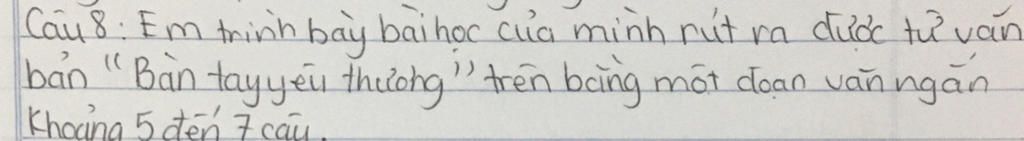 Câu 8: Em trình bày bài học của mình rút ra được từ văn
bản "Bàn tay yêu thương" trên bằng một đoạn văn ngắn
khoảng 5 đến 7 câu.